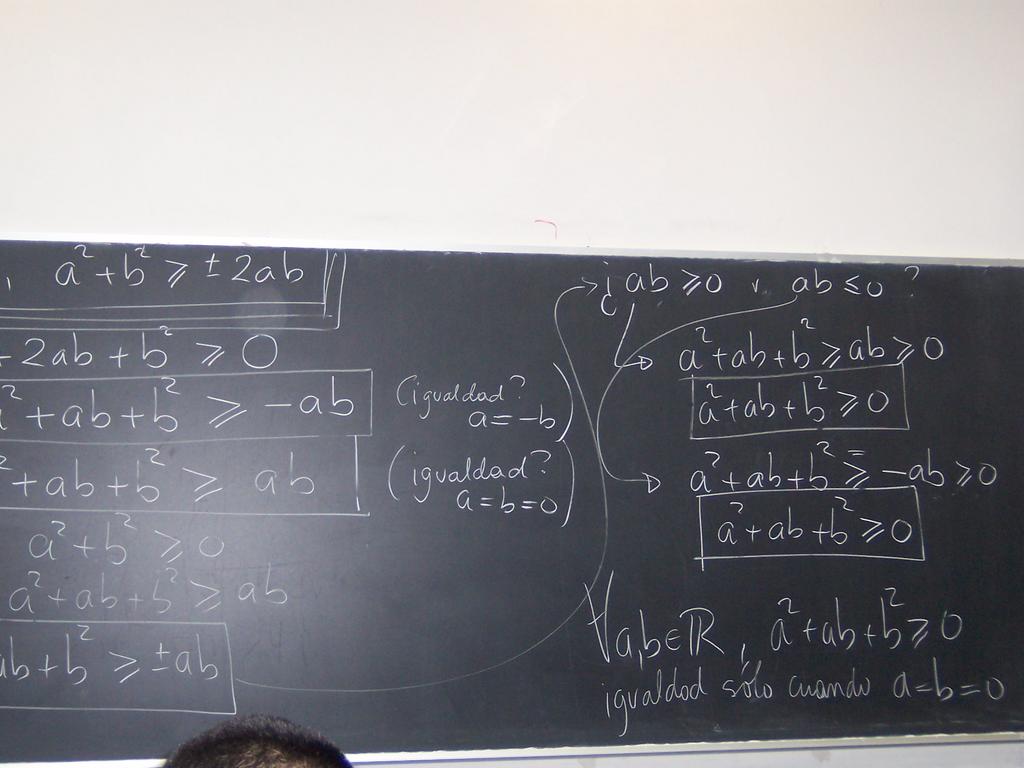 , a² + b² ⩾ ± 2ab
+ 2ab + b² ⩾ 0
a² + ab + b² ⩾ -ab
(igualdad?
a = -b)
² + ab + b² ⩾ ab
(igualdad?
a = b = 0)
a² + b² ⩾ 0
a² + ab + b² ⩾ ab
ab + b² ⩾ ± ab
¿ ab ⩾ 0 v ab ≤ 0 ?
a² + ab + b² ⩾ ab ⩾ 0
a² + ab + b² ⩾ 0
a² + ab + b² ⩾ -ab ⩾ 0
a² + ab + b² ⩾ 0
∀a,b∈ℝ, a² + ab + b² ⩾ 0
igualdad sólo cuando a = b = 0